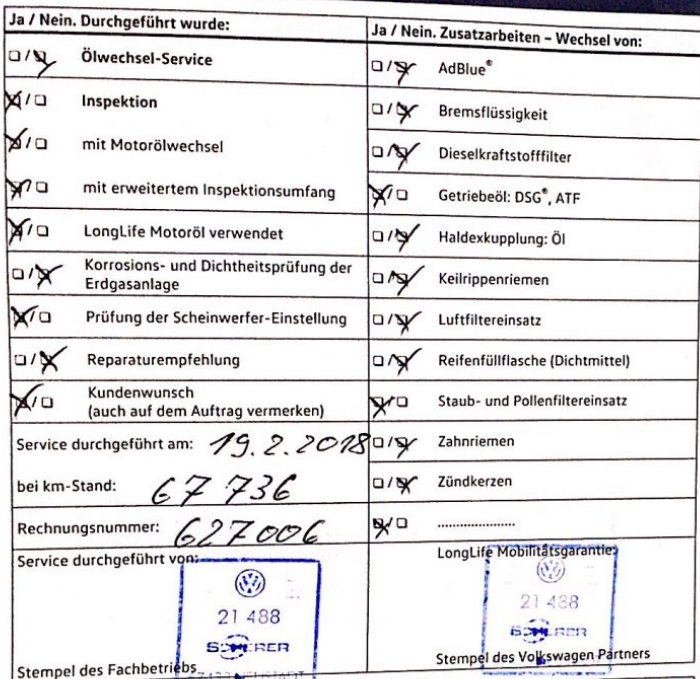 Ja / Nein. Durchgeführt wurde:
Ölwechsel-Service
Inspektion
mit Motorölwechsel
mit erweitertem Inspektionsumfang
LongLife Motoröl verwendet
Korrosions- und Dichtheitsprüfung der
Erdgasanlage
Prüfung der Scheinwerfer-Einstellung
Reparaturempfehlung
Kundenwunsch
(auch auf dem Auftrag vermerken)
Service durchgeführt am: 19.2.2018
bei km-Stand: 67 736
Rechnungsnummer: 627006
Service durchgeführt von:
21 488
SCHERER
Stempel des Fachbetriebs
Ja / Nein. Zusatzarbeiten – Wechsel von:
AdBlue®
Bremsflüssigkeit
Dieselkraftstofffilter
Getriebeöl: DSG®, ATF
Haldexkupplung: Öl
Keilrippenriemen
Luftfiltereinsatz
Reifenfüllflasche (Dichtmittel)
Staub- und Pollenfiltereinsatz
Zahnriemen
Zündkerzen
......................
LongLife Mobilitätsgarantie:
21 488
SCHERER
Stempel des Volkswagen Partners